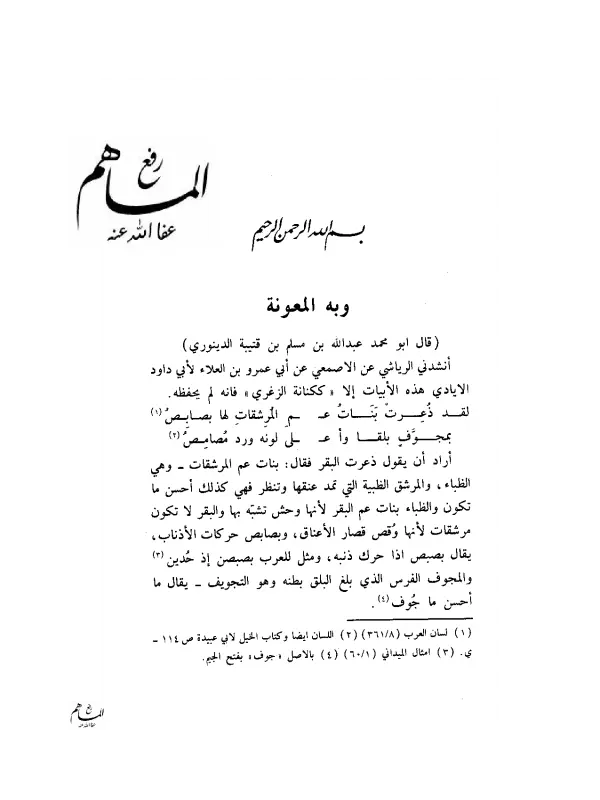 رفع
المساهم
عفا الله عنه
بسم الله الرحمن الرحيم
وبه المعونة
(قال ابو محمد عبدالله بن مسلم بن قتيبة الدينوري)
أنشدني الرياشي عن الاصمعي عن أبي عمرو بن العلاء لأبي داود
الايادي هذه الأبيات إلا « ككنانة الزغري» فانه لم يحفظه.
لقد ذُعِرتْ بَنَاتُ عـ ـم المُرشقاتِ لها بصابِصُ (١)
بمجوَّفٍ بلقـا وأ عـ ـلى لونه ورد مُصامِصُ (٢)
أراد أن يقول ذعرت البقر فقال: بنات عم المرشقات ـ وهي
الظباء، والمرشق الظبية التي تمد عنقها وتنظر فهي كذلك أحسن ما
تكون والظباء بنات عم البقر لأنها وحش تشبّه بها والبقر لا تكون
مرشقات لأنها وُقص قصار الأعناق، وبصابص حركات الأذناب،
يقال بصبص اذا حرك ذنبه، ومثل للعرب بصبصن إذ حُدين (٣)
والمجوف الفرس الذي بلغ البلق بطنه وهو التجويف ـ يقال ما
أحسن ما جُوف (٤).
(١) لسان العرب (٣٦١/٨) (٢) اللسان ايضا وكتاب الخيل لابي عبيدة ص ١١٤ ـ
ي. (٣) امثال الميداني (٦٠/١) (٤) بالاصل «جوف» بفتح الجيم.
رفع
المساهم
عفا الله عنه